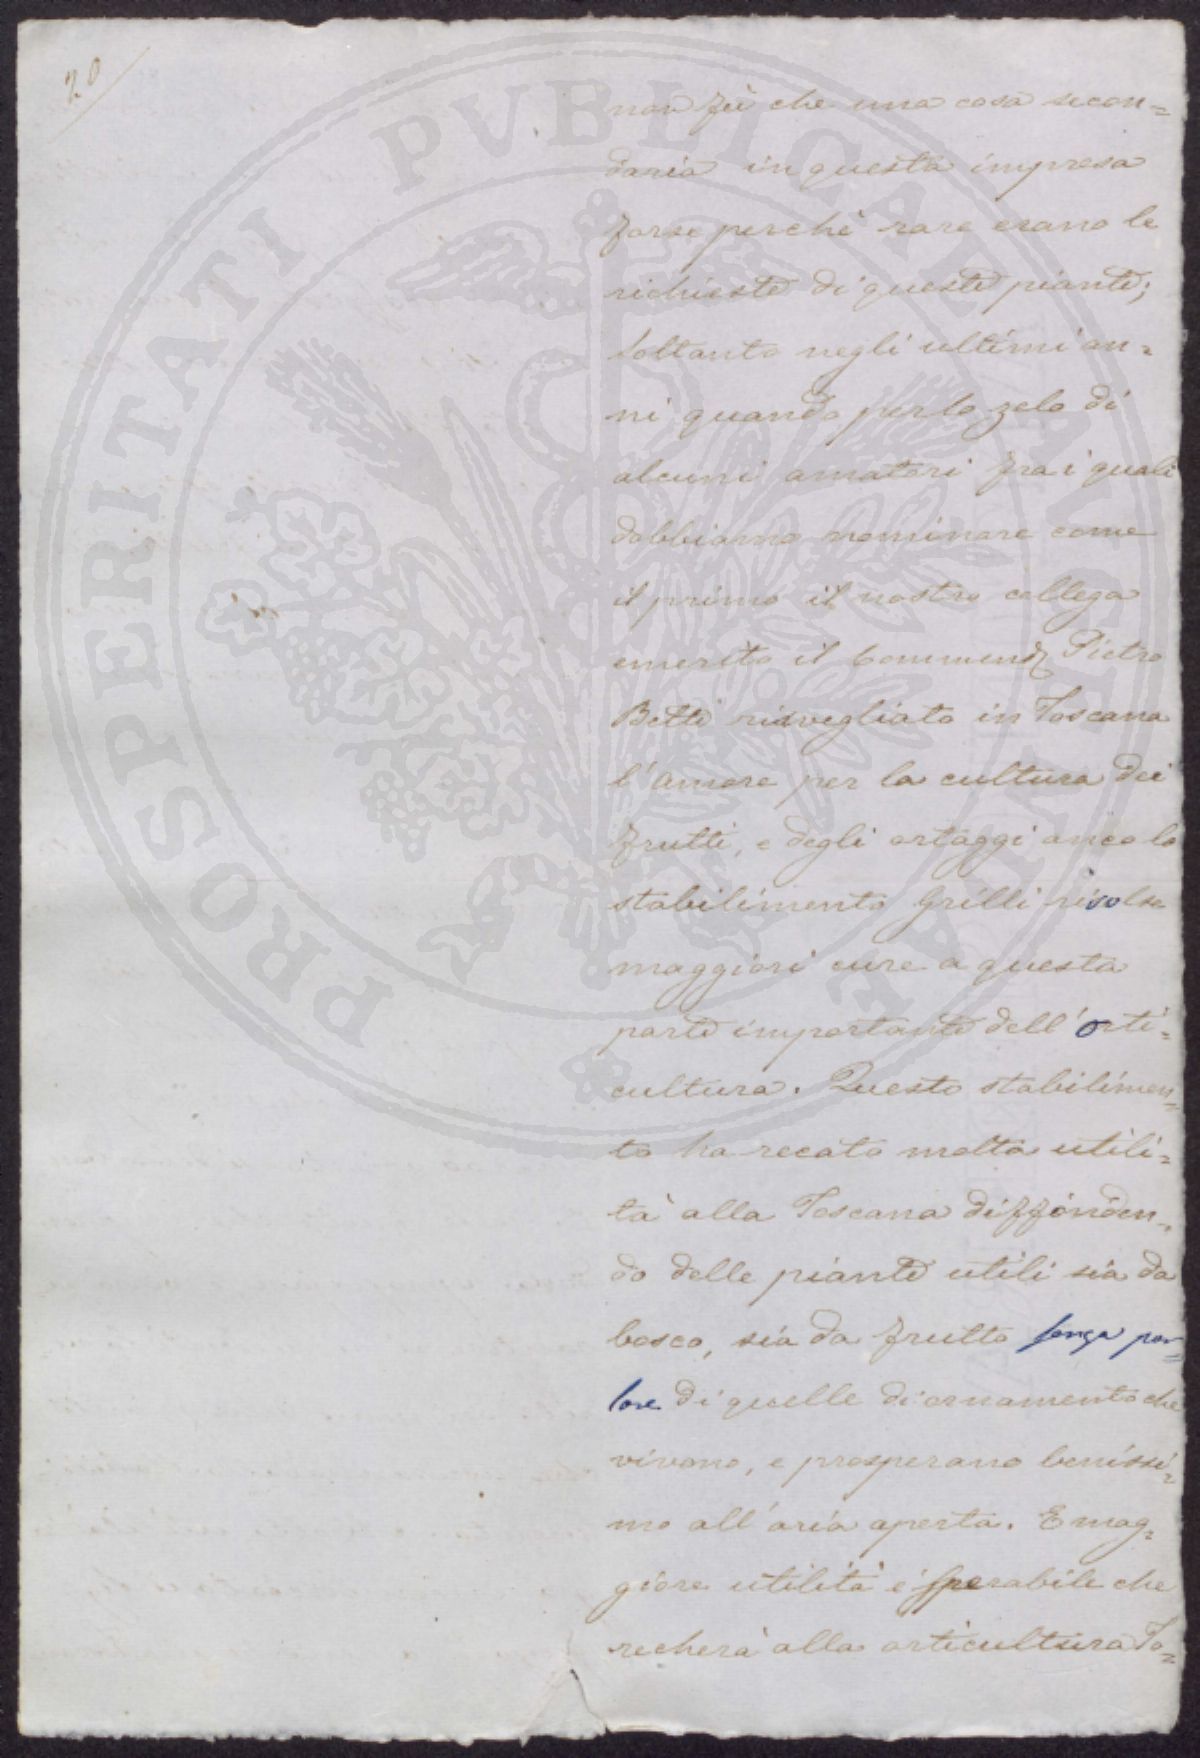 20
non fù che una cosa secon=
daria in questa impresa
forse perchè rare erano le
richieste di queste piante;
soltanto negli ultimi an=
ni quando per lo zelo di
alcuni amatori fra i quali
dobbiamo nominare come
il primo il nostro collega
emerito il Commend Pietro
Betti risvegliato in Toscana
l'amore per la cultura dei
frutti, e degli ortaggi anco lo
stabilimento Grilli risolse
maggiori cure a questa
parte importante dell'orti=
cultura. Questo stabilimen=
to ha recato molta utili=
tà alla Toscana diffonden=
do delle piante utili sia da
bosco, sia da frutto senza par=
lare di quelle di ornamento che
vivono, e prosperano benissi=
mo all'aria aperta. E mag=
giore utilità è sperabile che
recherà alla orticultura To=
PROSPERITATI PVBLICAE AVGENDAE